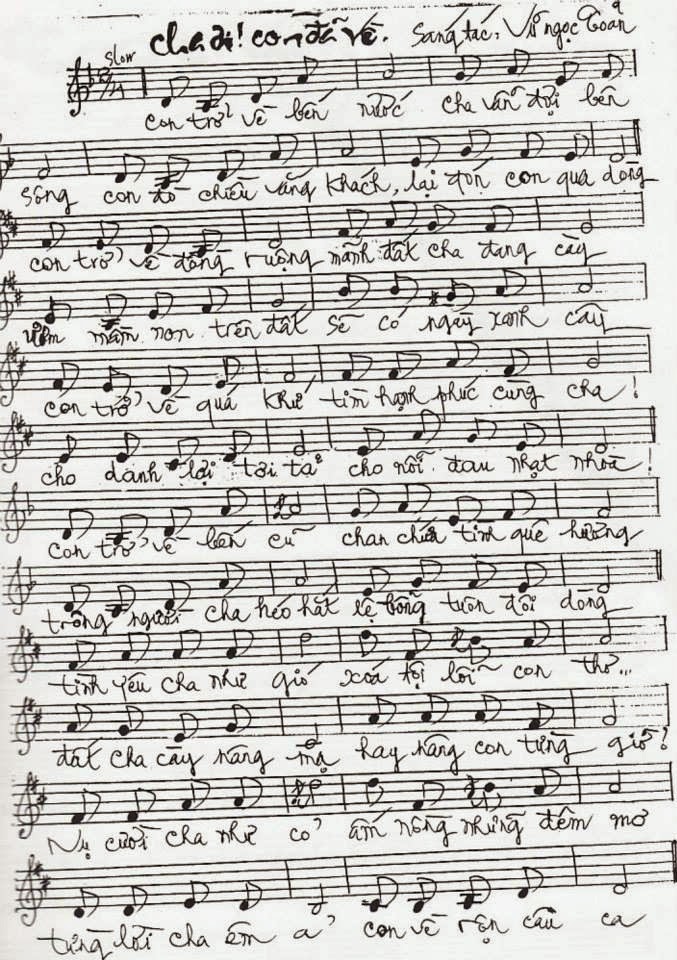 cha ơi! con đã về. Sáng tác: Vũ ngọc Toản
Slow
con trở về bến nước cha vẫn đợi bên
sông con đò chiều vắng khách, lại đón con qua dòng
con trở về đồng ruộng mảnh đất cha đang cày
ươm mầm non trên đất sẽ có ngày xanh cây
con trở về quá khứ tìm hạnh phúc cùng cha!
cho dành lại tơi tả cho nỗi đau nhạt nhoà!
con trở về bến cũ chan chứa tình quê hương
trông người cha héo hắt lệ bỗng tuôn đôi dòng
tình yêu cha như gió xoá tội lỗi con thơ...
đất cha cày nâng mạ hay nâng con từng giờ!
Nụ cười cha như có ấm nồng những đêm mơ
từng lời cha êm ả con về rộn câu ca